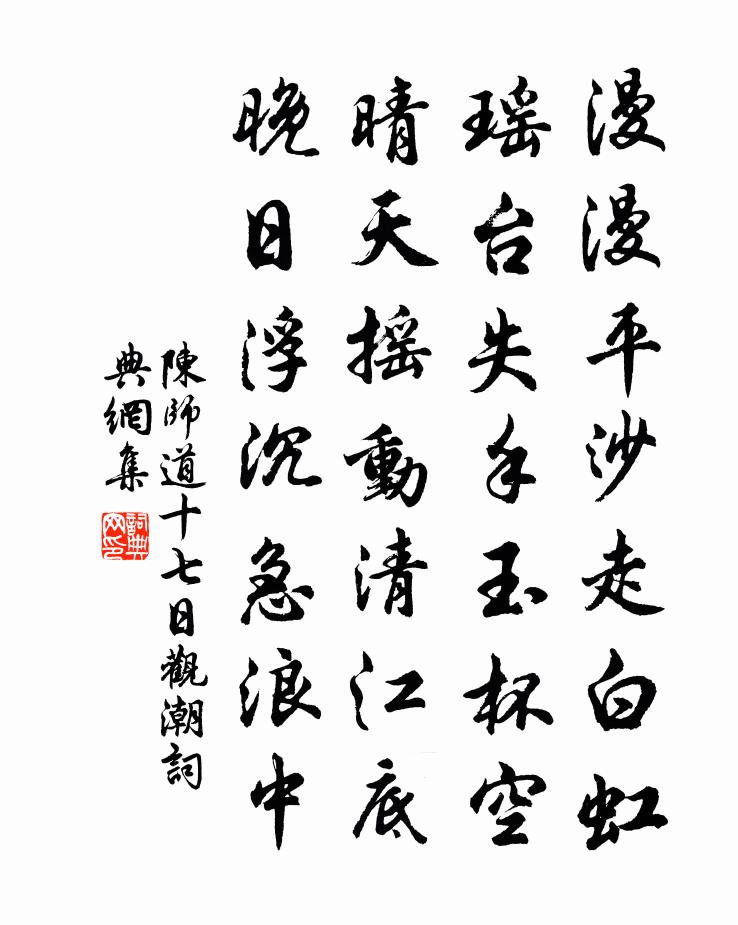 漫漫平沙走白虹
瑶台失手玉杯空
晴天摇動清江底
晚日浮沉急浪中
陳師道十七日觀潮詞
典網集
詞典網印